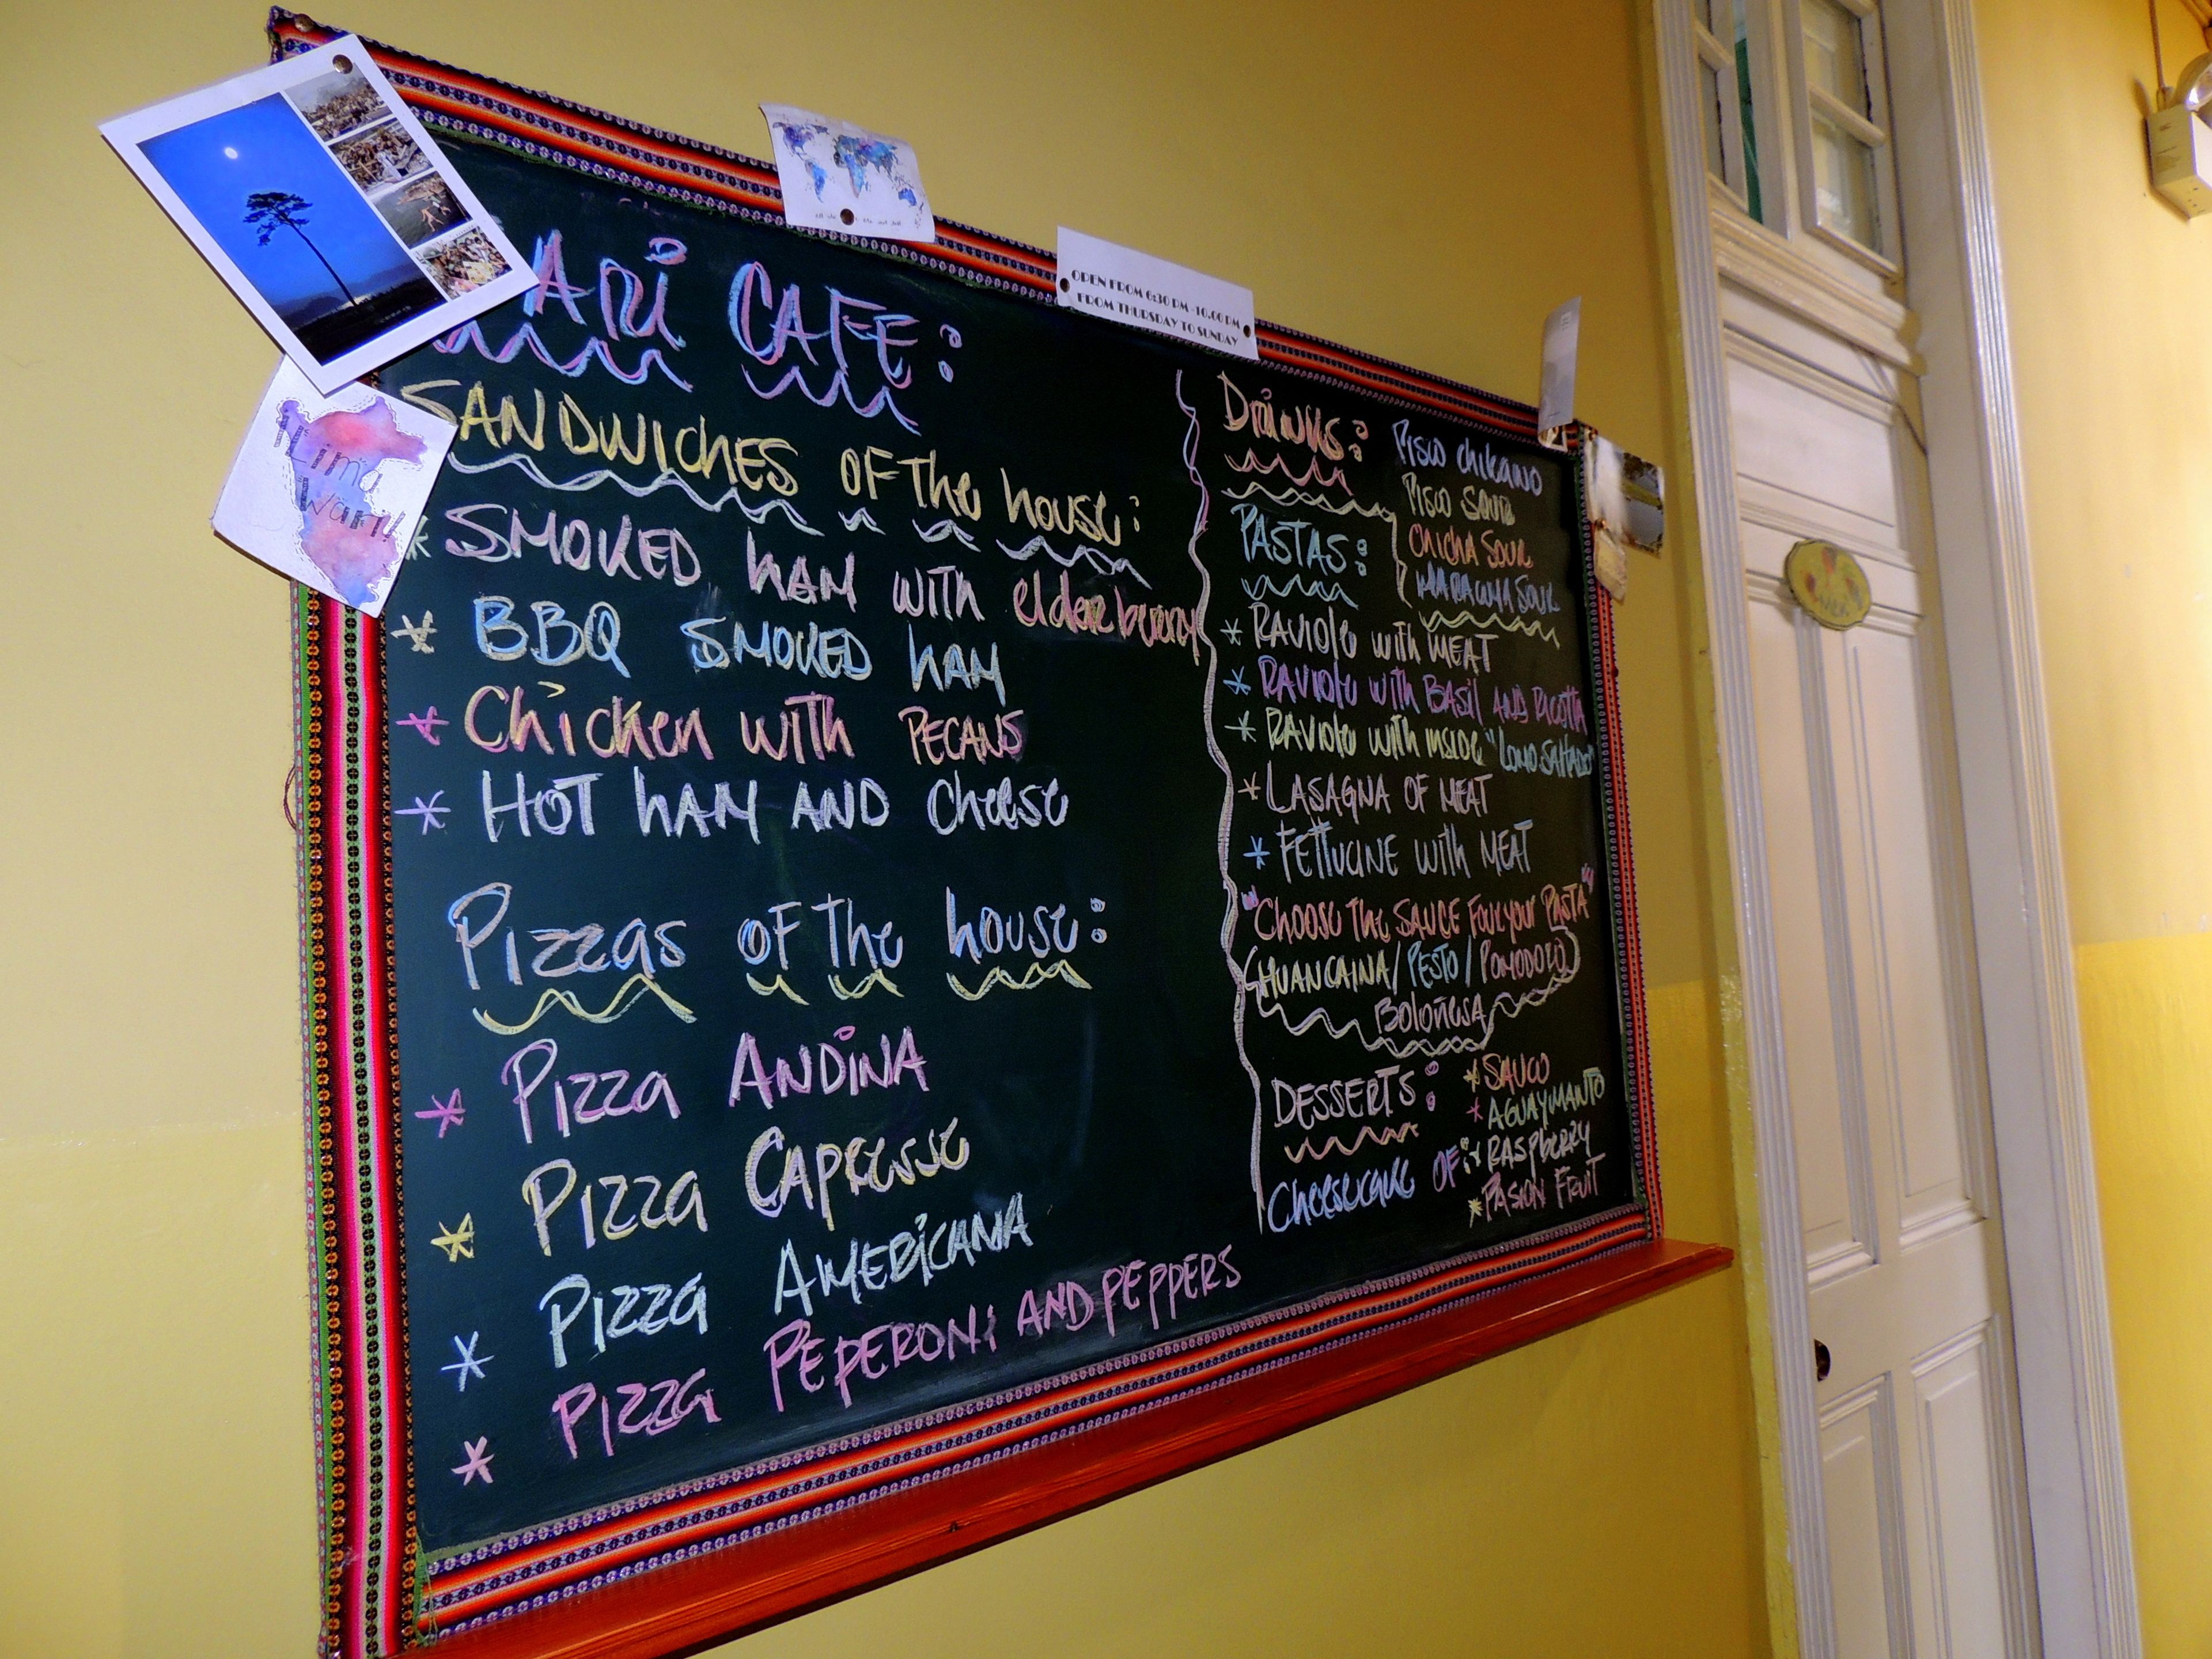 OPEN FROM 6:30 PM -10.00 PM
FROM THURSDAY TO SUNDAY
ARI CAFE:
SANDWICHES OF The house:
* SMOKED hAM WITh elderberry
* BBQ SMOKED hAM
* Chicken with PECANS
* HOT hAM AND cheese
Pizzas OF The house:
* Pizza ANDINA
* Pizza CAPRESSE
* Pizza AMERICANA
* Pizza PEPERONI AND PEPPERS
DRINKS:
Pisco chikano
Pisco SOUR
Chicha SOUR
MARACUYA SOUR
PASTAS:
* RAViole with MEAT
* RAViole with BASil AND RICOTTA
* RAViole with inside "LOMO SALTADO"
* LASAGNA OF MEAT
* FETTUCINE with MEAT
"CHOOSE The SAUCE FOR YOUR PASTA"
(HUANCAINA/ PESTO / POMODORO)
Boloñesa
DESSERTS:
Cheesecake OF:
* SAUCO
* AGUAYMANTO
* RASpberry
* PASION FRUIT
Lima